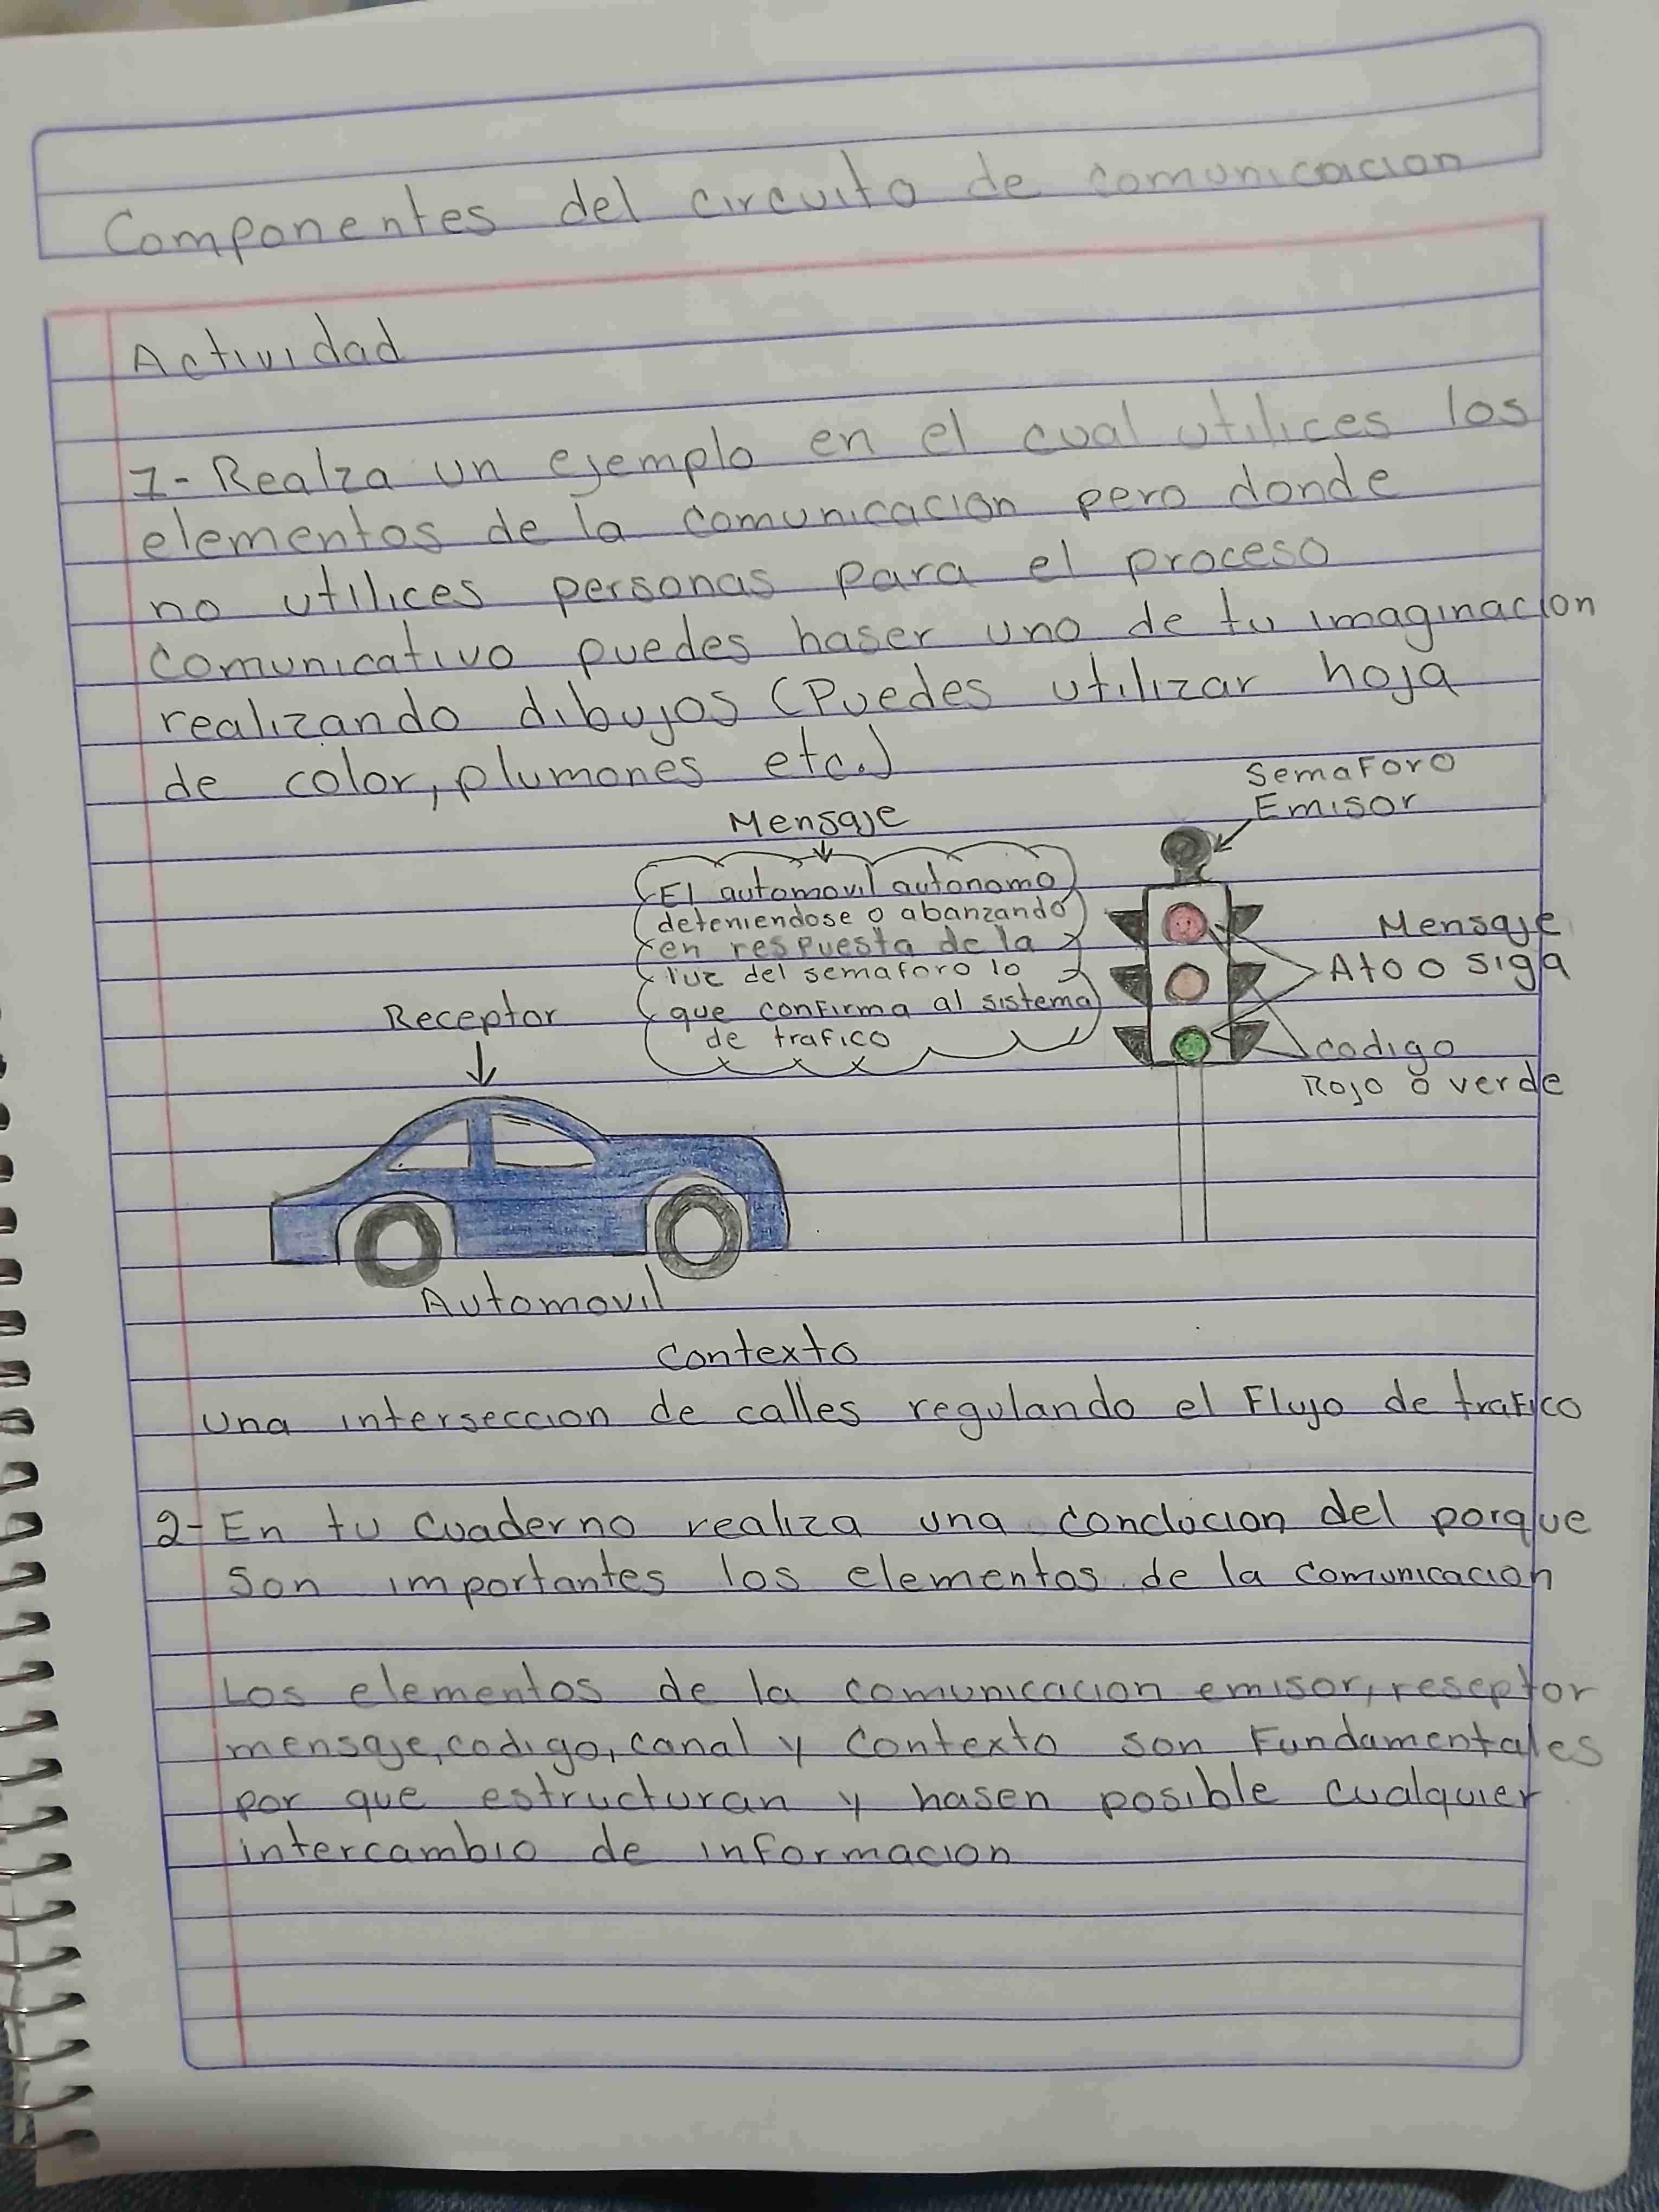 Componentes del circuito de comunicacion
Actividad
1- Realza un ejemplo en el cual utilices los
elementos de la comunicacion pero donde
no utilices personas para el proceso
comunicativo puedes haser uno de tu imaginacion
realizando dibujos (Puedes utilizar hoja
de color, plumones etc.)
Semaforo
Emisor
Mensaje
El automovil autonomo
deteniendose o abanzando
en respuesta de la
luz del semaforo lo
que confirma al sistema
de trafico
Mensaje
Ato o siga
codigo
Rojo o verde
Receptor
Automovil
Contexto
una interseccion de calles regulando el Flujo de trafico
2- En tu cuaderno realiza una conclucion del porque
son importantes los elementos de la comunicacion
Los elementos de la comunicacion emisor, reseptor
mensaje, codigo, canal y contexto son Fundamentales
por que estructuran y hasen posible cualquier
intercambio de informacion